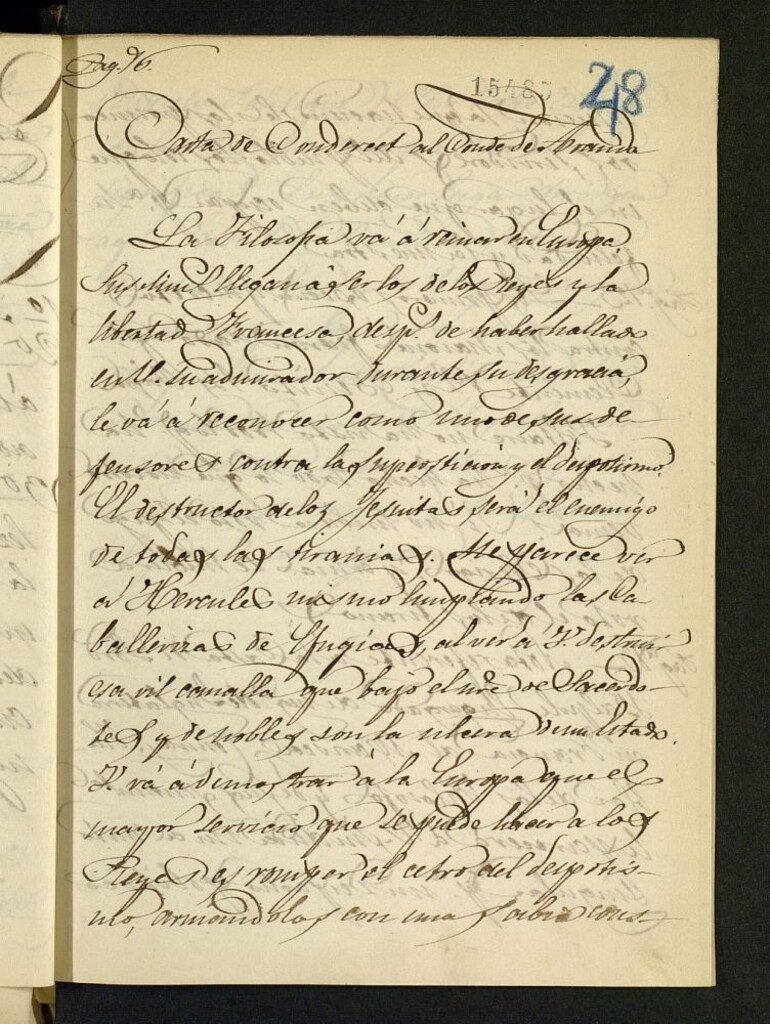 Pag. 96.
15485
248
Carta de Condorcet al Conde de Aranda
La Filosofia vá á reinar en Europa.
lleganá ser los de los Reyes y la
libertad Francesa, desp.s de haber hallado
en U. su admirador durante su desgracia,
le vá á reconocer como uno de sus de-
fensores contra la superstición y el despotismo.
El destructor de los Jesuitas será el enemigo
de todas las tiranias. Me parece ver
á Hercules mismo limpiando las Ca-
ballerizas de, al ver á V. destruir
esa vil canalla que bajo el nre de Sacerdo-
tes y de nobles son la ulcera de un Estado.
V. vá á demostrar á la Europa que el
mayor servicio que se puede hacer a los
Reyes es romper el cetro del despotis-
mo, armándolos con una sabia cons-